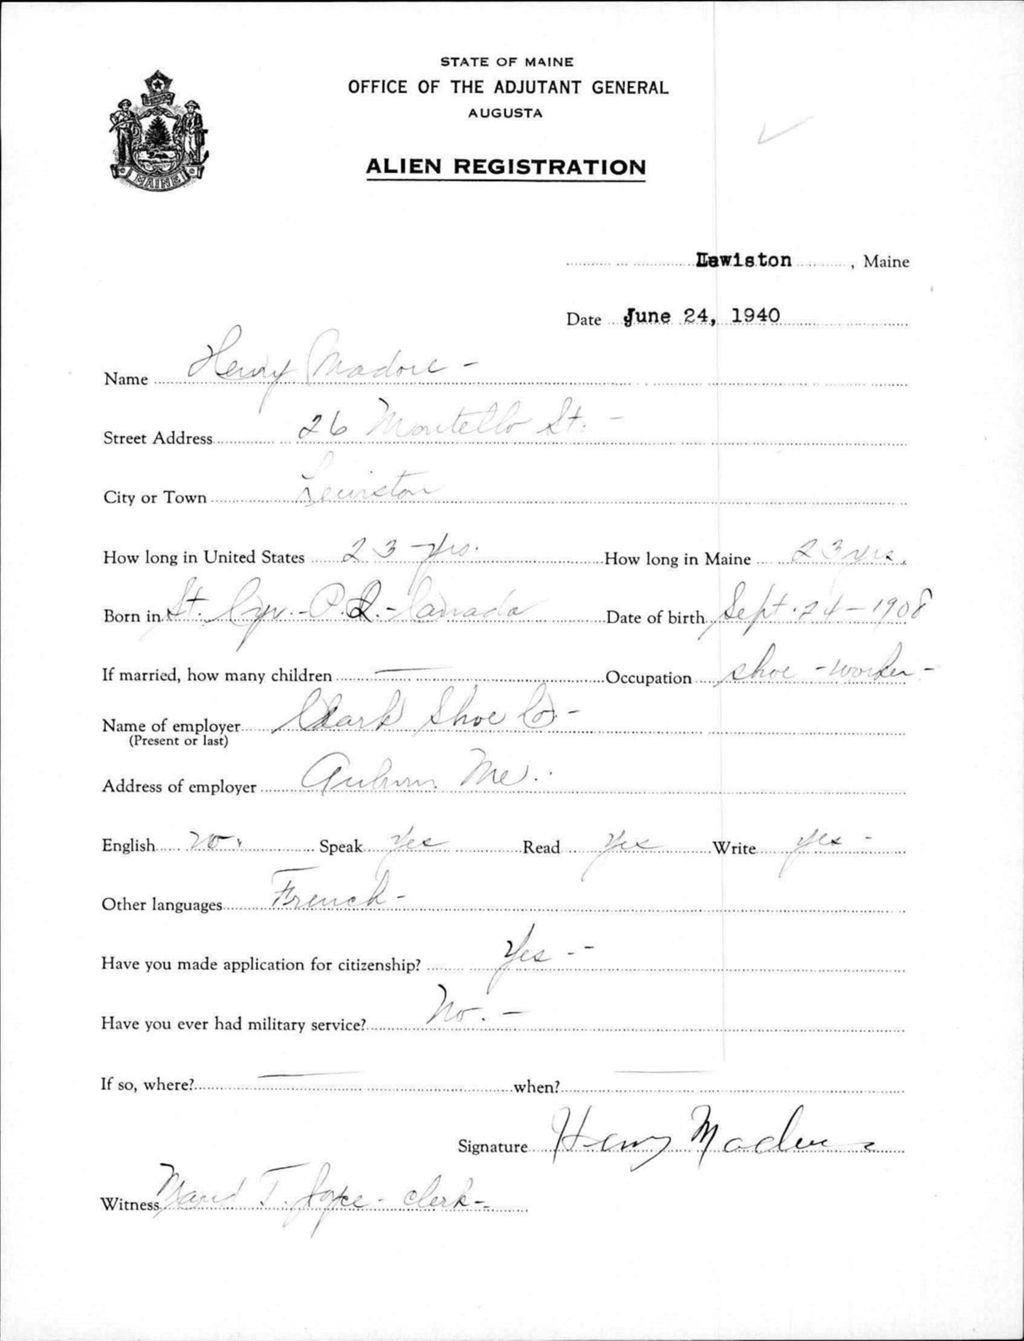 STATE OF MAINE
OFFICE OF THE ADJUTANT GENERAL
AUGUSTA
ALIEN REGISTRATION
MAINE
Lewiston, Maine
Date June 24, 1940
Name Henry Madore -
Street Address 26 Montello St. -
City or Town Lewiston
How long in United States 23 yrs. How long in Maine 23 yrs.
Born in St. Cyr. - P.Q. - Canada Date of birth Sept. 24 - 1908
If married, how many children — Occupation shoe - worker -
Name of employer Clark Shoe Co. -
(Present or last)
Address of employer Auburn Me.
English no. Speak Yes Read Yes Write yes -
Other languages French -
Have you made application for citizenship? Yes - -
Have you ever had military service? No. -
If so, where? — when? —
Signature Henry Madore
Witness T. Joyce - clerk -